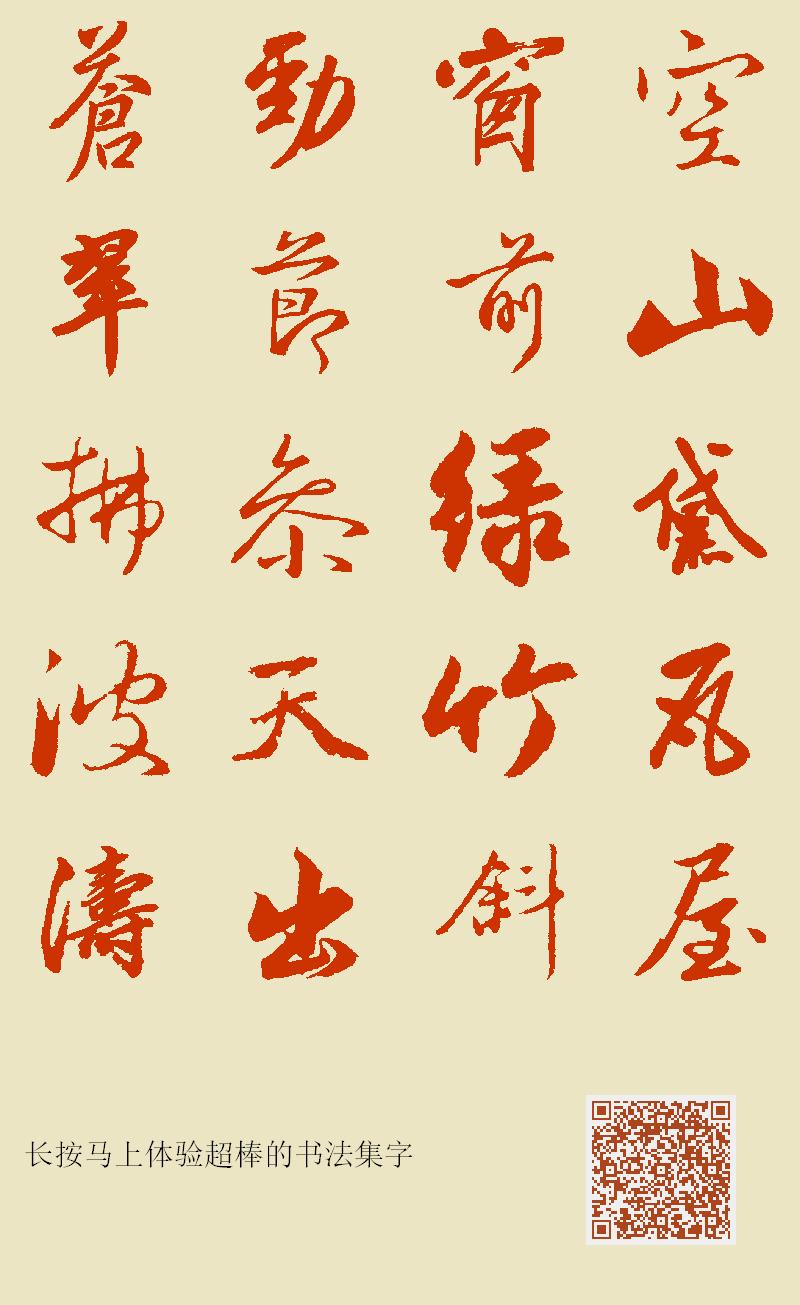 空山黛瓦屋
窗前绿竹斜
勁節参天出
蒼翠拂波濤
长按马上体验超棒的书法集字